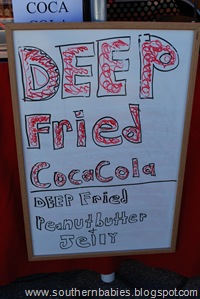 COCA
COLA
DEEP
Fried
CocaCola
DEEP Fried
Peanutbutter
Jelly
www.southernbabies.blogspot.com